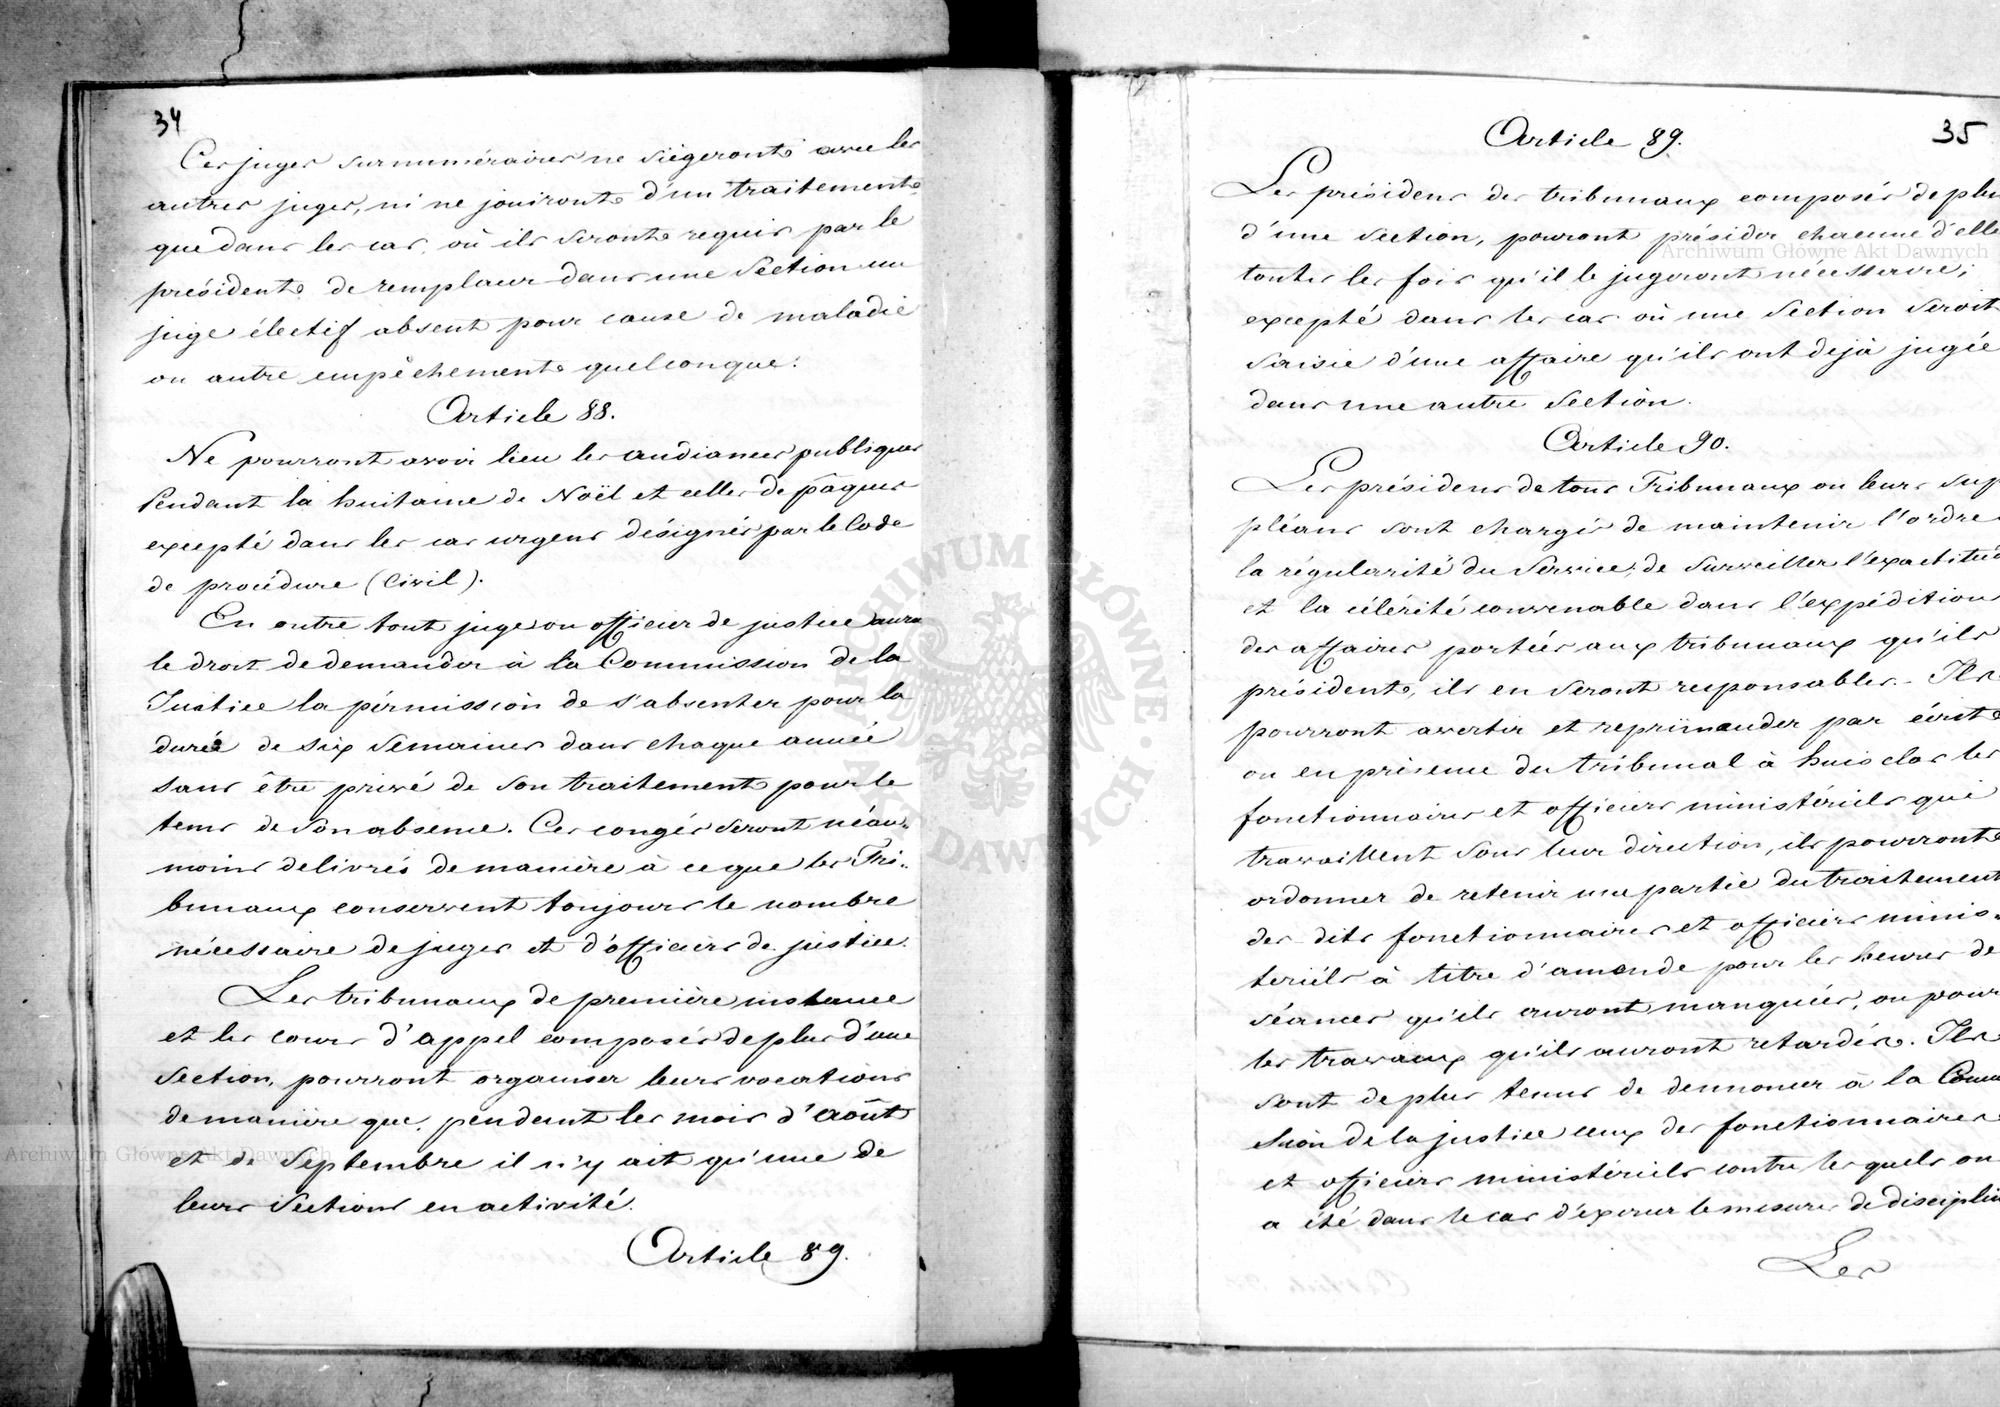 34
Ces juges surnuméraires ne siégeront avec les
autres juges, ni ne jouiront d'un traitement
que dans les cas, où ils seront requis par le
président de remplacer dans une Section un
juge électif absent pour cause de maladie
ou autre empêchement quelconque.
Article 88.
Ne pourront avoir lieu les audiances publiques
Pendant la huitaine de Noël et celles de pâques
excepté dans les cas urgens désignés par le Code
de procédure (Civil).
En outre tout juge ou officier de justice aura
le droit de demander à la Commission de la
Justice la pérmission de s'absenter pour la
durée de six semaines dans chaque année
sans être privé de son traitement pour le
tems de son absence. Ces congés seront néau-
moins delivrés de manière à ce que les Tri-
bunaux conservent toujours le nombre
nécessaire de juges et d'officiers de justice.
Les tribunaux de première instance
et les cours d'appel composés de plus d'une
Section, pourront organiser leurs vocations
de manière que, pendant les mois d'Août
et de Septembre il n'y ait qu'une de
leurs Sections en activité.
Article 89.
35
Article 89.
Les présidens des tribunaux composés de plu
d'une Section, pouront présider chacune d'elle
toutes les fois qu'il le jugeront nécessaire;
excepté dans les cas où une Section seroit
saisie d'une affaire qu'ils ont dejà jugée
dans une autre Section.
Article 90.
Les présidens de tous Tribunaux ou leurs sup
pléans sont chargés de maintenir l'ordre
la régularité du Service, de surveiller l'exactitud
et la célérité convenable dans l'expédition
des affaires portées aux tribunaux qu'ils
président, ils en seront responsables. - Ils
pourront avertir et reprimander par écrit
ou en présence du tribunal à huis clos les
fonctionnaires et officiers ministériels qui
travaillent sous leur direction, ils pourront
ordonner de retenir une partie du traitement
des dits fonctionnaires et officiers minis-
teriéls à titre d'amende pour les heures de
séances qu'ils auront manquées, ou pour
les travaux qu'ils auront retardés. Ils
sont de plus tenus de dennoncer à la Comm
ssion de la justice ceux des fonctionnaires
et officiers ministériels contre lesquels on
a été dans le cas d'exercer le mesures de disciplin
Les
Archiwum Główne Akt Dawnych
Archiwum Główne Akt Dawnych
ARCHIWUM GŁÓWNE AKT DAWNYCH